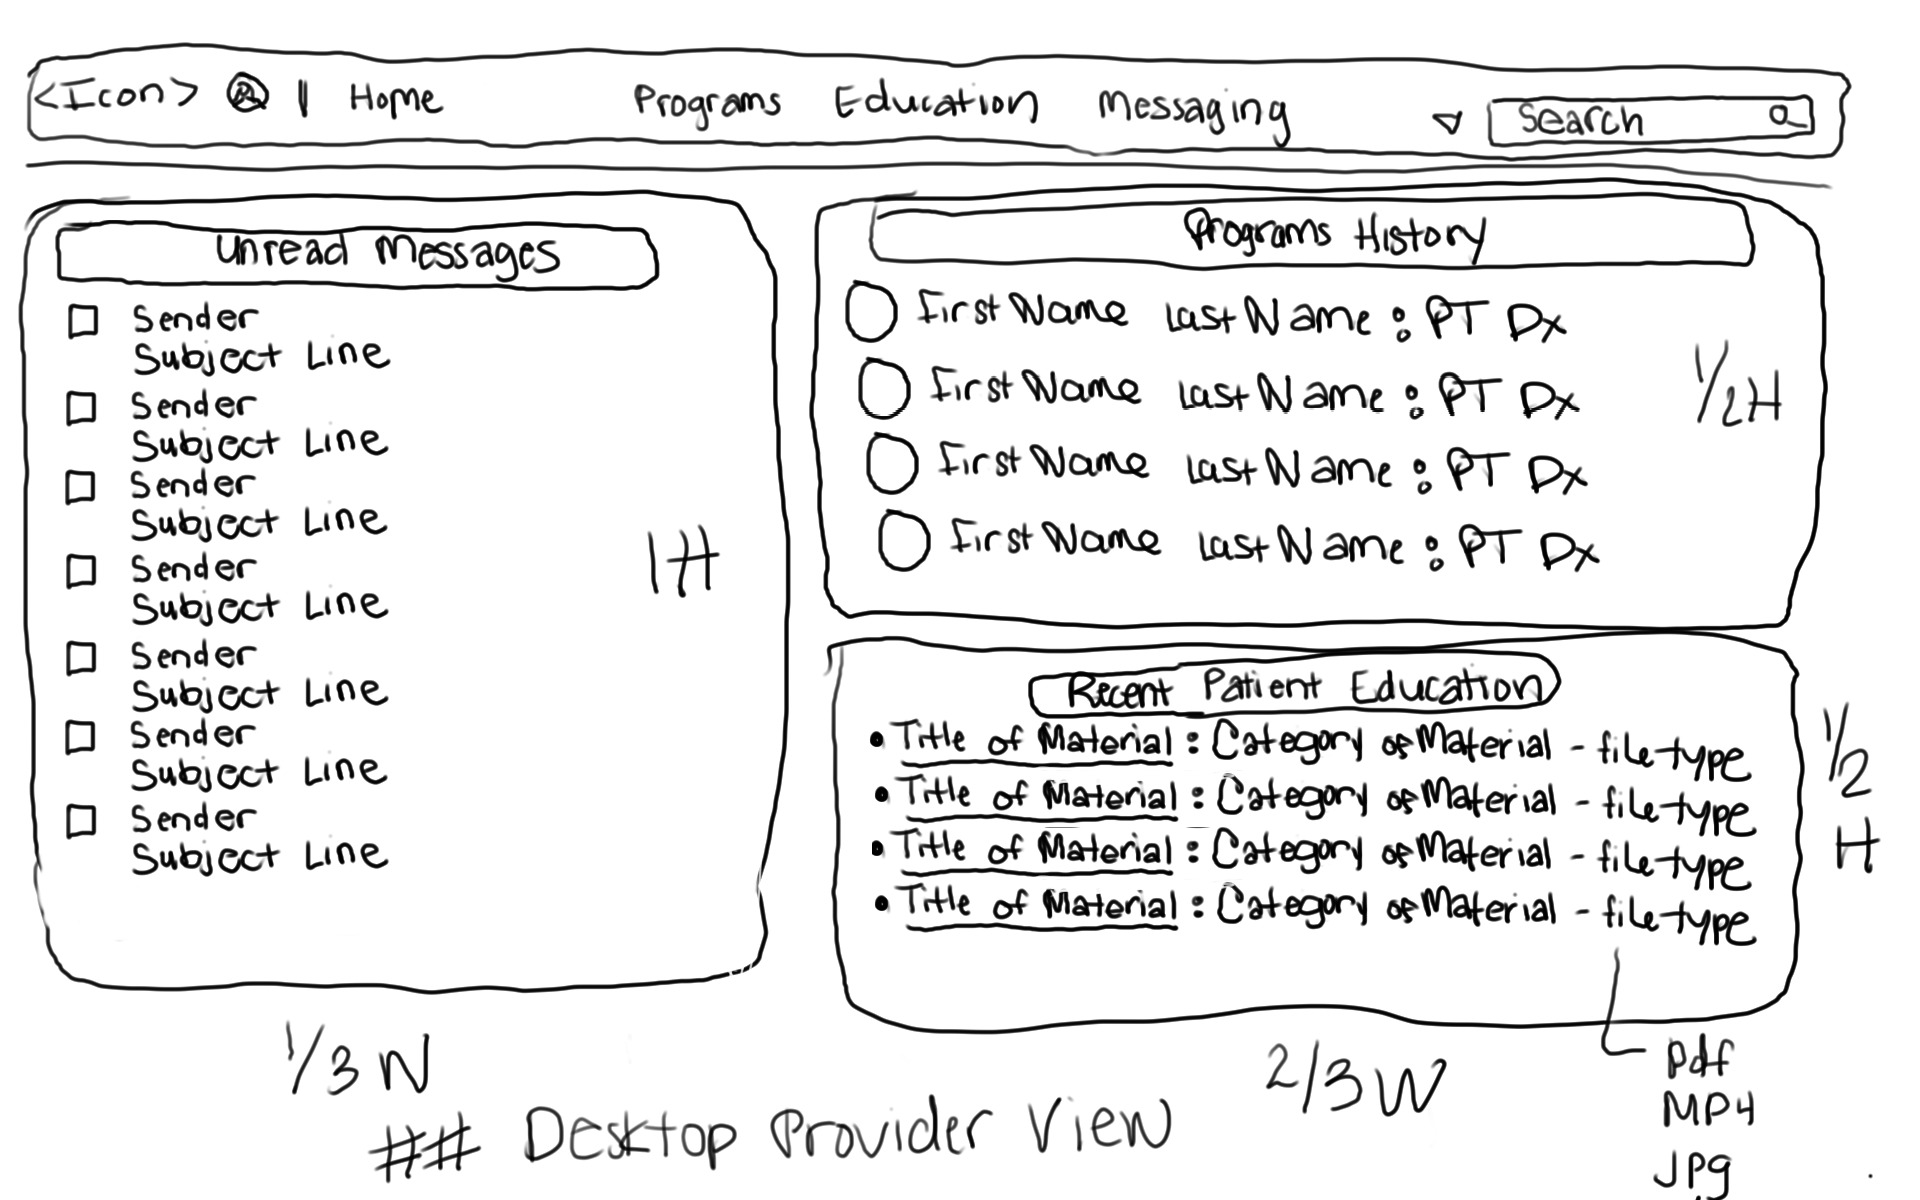 <Icon> | Home Programs Education Messaging Search
Unread Messages
Sender
Subject Line
Sender
Subject Line
Sender
Subject Line
Sender
Subject Line
Sender
Subject Line
Sender
Subject Line
Sender
Subject Line
1H
1/3 W
Programs History
First Name Last Name : PT Dx
First Name Last Name : PT Dx
First Name Last Name : PT Dx
First Name Last Name : PT Dx
1/2H
Recent Patient Education
• Title of Material : Category of Material - file type
• Title of Material : Category of Material - file type
• Title of Material : Category of Material - file type
• Title of Material : Category of Material - file type
1/2
H
2/3 W
pdf
MP4
Jpg
## Desktop Provider View